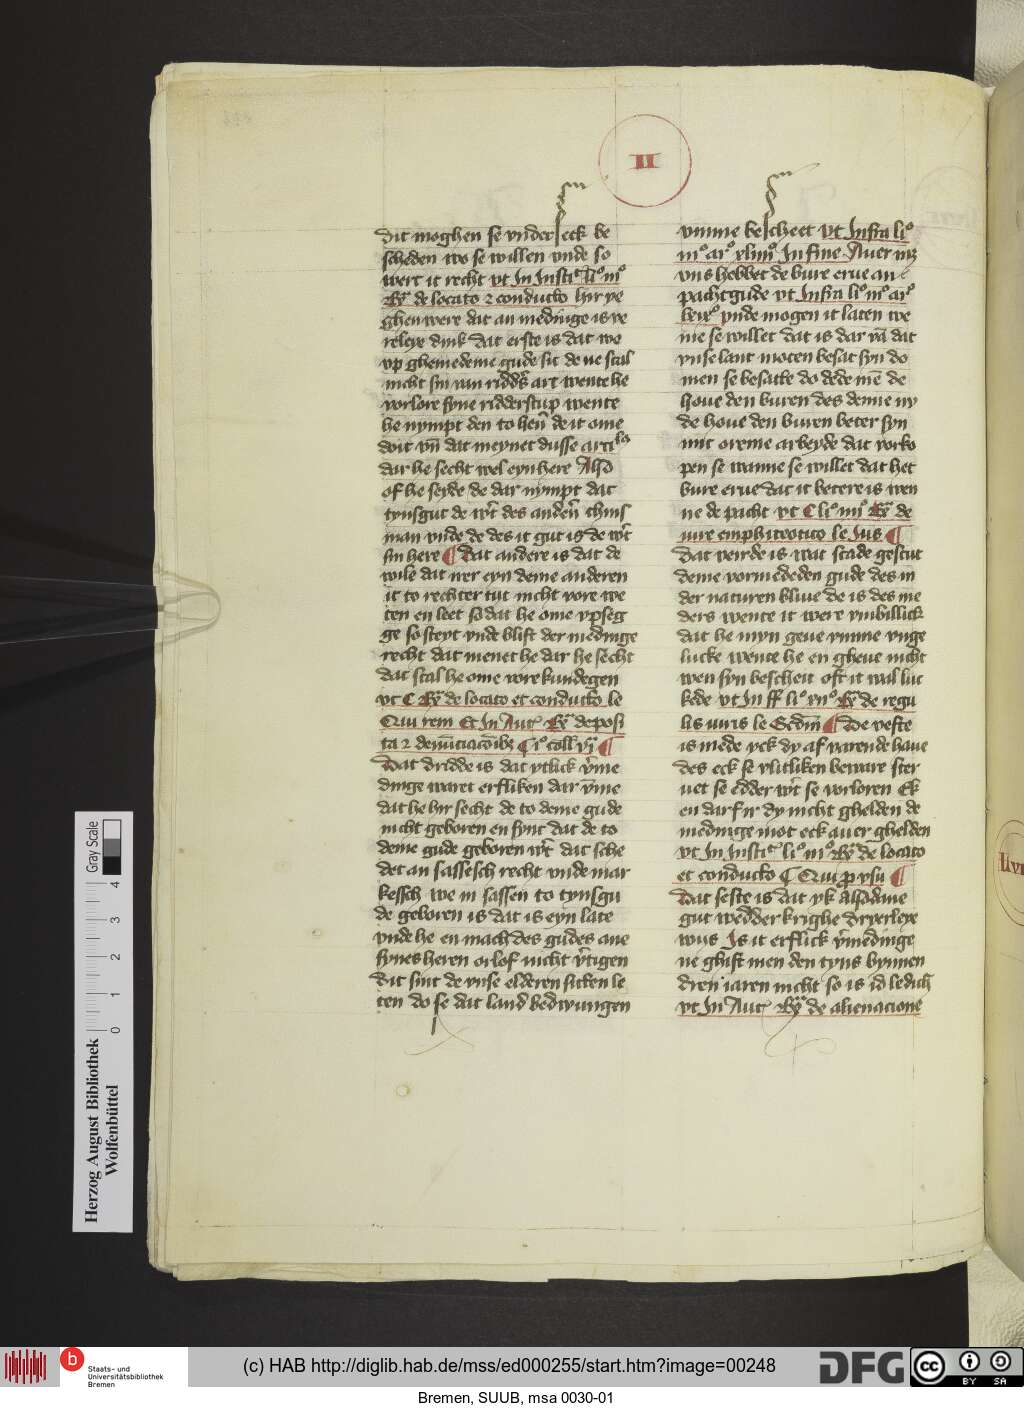 II
dit moghen se vnder eck be
scheden wo se willen vnde so
wert it recht vt In Insti. li.º iii.º
Ry. de locato ⁊ conducto hir ye
ghen were dat an medinge is ve
releye dink Dat erste is dat we
vp ghemedeme gude sit de ne scal
nicht sin van ridders art wente he
vorlore syne ridderscup wente
he nympt den to hen de it ome
doit vn dat meynet dusse arti
dar he secht wel eyn here Also
of he seyde de dar nympt dat
tynsgut de wert des anderen thins
man vnde de des it gut is de wert
sin here ¶ Dat andere is dat de
wile dat ner eyn deme anderen
it to rechter tiit nicht vore we
ten en leet so dat he ome vpseg
ge so steyt vnde blift der medinge
recht dat menet he dar he secht
dat scal he ome vore kundegen
vt C Ry de locato et conducto le
Qui rem Et In Aut. Ry de posi
ta ⁊ denunciacoibꝫ
Dat dridde is dat ytlick vme
dinge waret erfliken dar vme
dat he hir secht de to deme gude
nicht geboren en synt dat de to
deme gude geboren wert dat sche
det an sassesch recht vnde mar
kessch we in sassen to tynsgu
de geboren is dat is eyn late
vnde he en mach des gudes ane
synes heren orlof nicht vertigen
dit sint de vnse elderen sitten le
ten do se dit land bedwungen
vmme bescheet vt Infra li.º
iii.º ar.º xliiii.º In fine Auer mꝫ
vns hebbet de bure erue an
pachtgude vt Infra li.º iii.º ar.º
lxxv.º vnde mogen it laten we
me se willet dat is dar van dat
vnse lant moten besat syn do
men se besatte do dede men de
houe den buren des deme ny
de houe den buren beter syn
mit oreme arbeyde dat vorko
pen se wanne se willet dat het
bure erue dat it betere is wen
ne de pacht vt C li.º iiii.º Ry de
iure emphiteotico le Ius ¶
Dat verde is wat scade geschut
deme vormededen gude des in
der naturen bliue de is des me
ders wente it were vmbillick
dat he myn geue vmme vnge
lucke wente he en gheue nicht
wen syn bescheit oft it wal luc
kede vt In ff li.º Ry de regu
lis iuris le Secdm ¶ De vefte
is mede yck dy af varende haue
des eck se vlitliken beware ster
uet se edder wert se vorloren Ek
en darf ir dy nicht ghelden de
medinge mot eck auer ghelden
vt In Insti. li.º iii.º Ry de locato
et conducto C Qui pro vsu ¶
Dat seste is dat yk alsodane
gut wedder krighe dryerleye
wiis Is it erflick vmedinge
ne ghift men den tyns bynnen
dren iaren nicht so is id ledich
vt In Aut. Ry de alienacione
Herzog August Bibliothek
Wolfenbüttel
Gray Scale
0 1 2 3 4
Staats- und
Universitätsbibliothek
Bremen
(c) HAB http://diglib.hab.de/mss/ed000255/start.htm?image=00248
DFG
cc BY SA
Bremen, SUUB, msa 0030-01